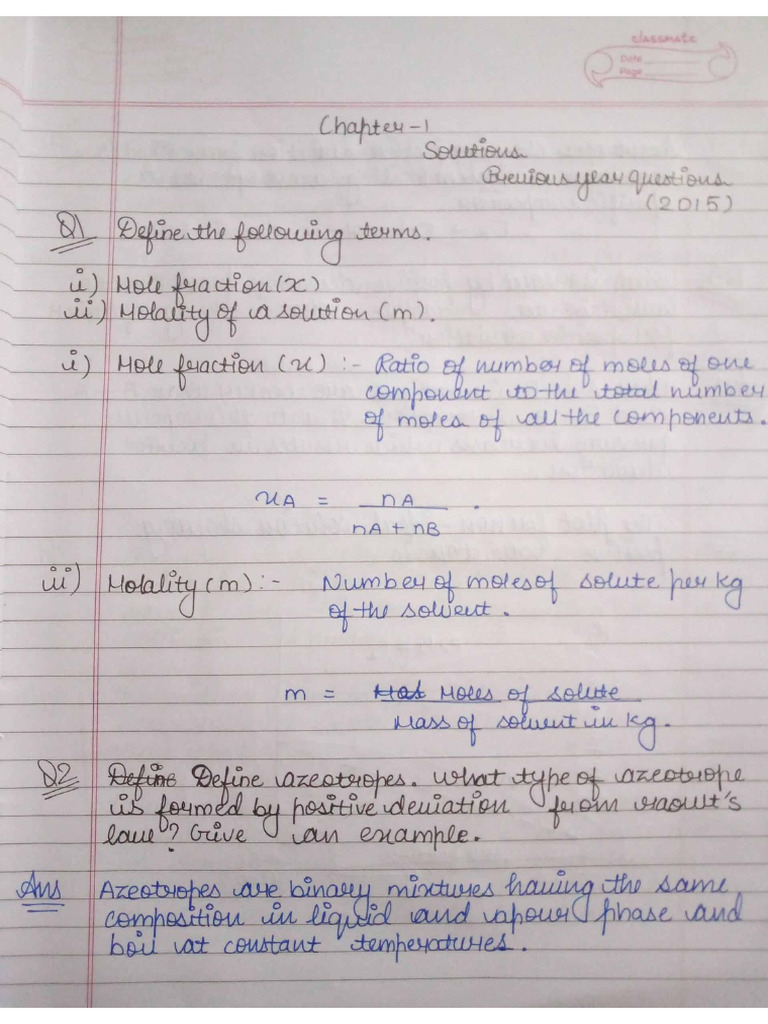 classmate
Date
Page
Chapter-1
Solutions
Previous year questions
(2015)
Q1 Define the following terms.
i) Mole fraction (x)
ii) Molality of a solution (m).
i) Mole fraction (x) :- Ratio of number of moles of one
component to the total number
of moles of all the components.
xA = nA .
nA + nB
ii) Molality (m) :- Number of moles of solute per kg
of the solvent.
m = Moles of solute
Mass of solvent in kg.
Q2 Define Define azeotropes. What type of azeotrope
is formed by positive deviation from raoult's
law? Give an example.
Ans Azeotropes are binary mixtures having the same
composition in liquid and vapour phase and
boil at constant temperatures.